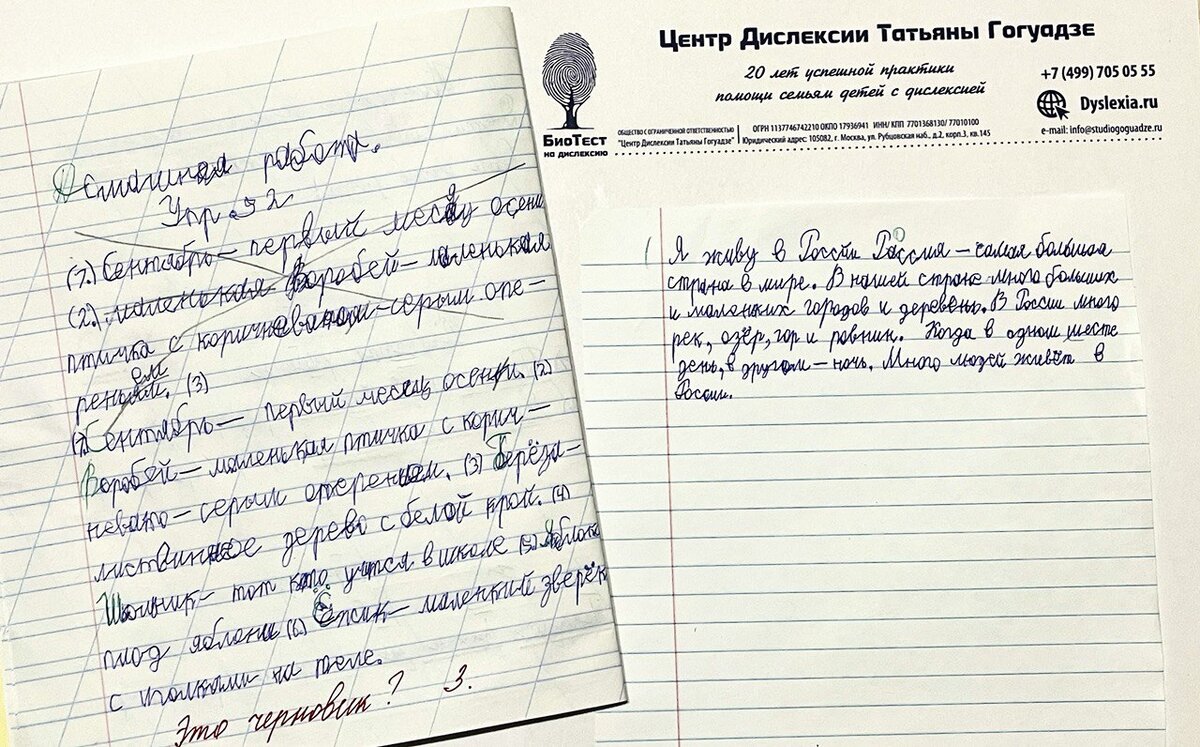 Домашняя работа.
Упр. 92
(1) Сентябрь — первый месяц осени
(2.) маленькая Воробей — маленькая
птичка с коричневатой — серым опе-
реньем. (3)
(1) Сентябрь — первый месяц осени. (2)
Воробей — маленькая птичка с корич-
невато — серым опереньем. (3) Берёза —
лиственное дерево с белой крой. (4)
Шкльник — тот кто учится в школе (5) Яблоко
плод яблони (6) Ёжик — маленкий зверёк
с иголками на теле.
Это черновик? 3.
Центр Дислексии Татьяны Гогуадзе
20 лет успешной практики
помощи семьям детей с дислексией
+7 (499) 705 05 55
Dyslexia.ru
e-mail: info@studiogoguadze.ru
БиоТест
на дислексию
ОБЩЕСТВО С ОГРАНИЧЕННОЙ ОТВЕТСТВЕННОСТЬЮ
"Центр Дислексии Татьяны Гогуадзе"
ОГРН 1137746742210 ОКПО 17936941 ИНН/ КПП 7701368130/ 77010100
Юридический адрес: 105082, г. Москва, ул. Рубцовская наб., д.2, корп.3, кв.145
Я живу в Россйи Рассия — самая большая
страна в мире. В нашей стране много больших
и маленьких городов и деревень. В России много
рек, озёр, гор и равнин. Когда в одном месте
день, в другом — ночь. Много людей живёт в
России.